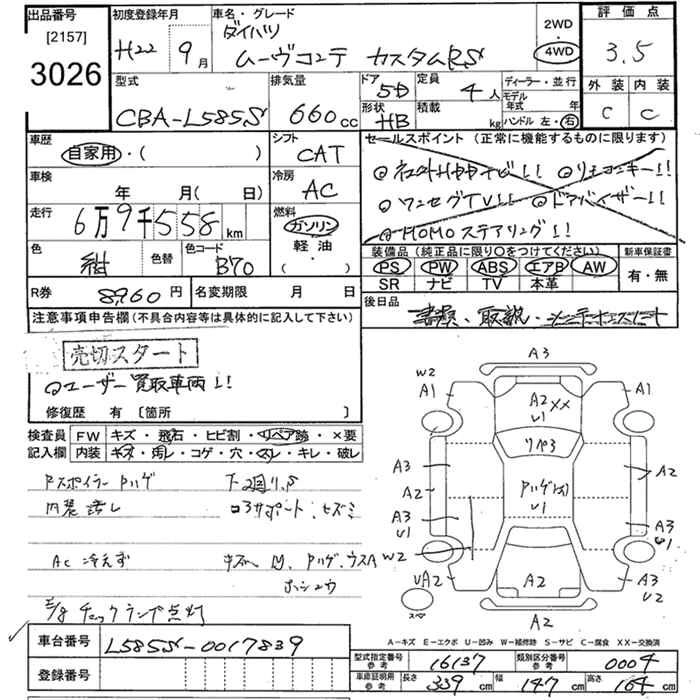 出品番号 初度登録年月 車名・グレード 2WD 評価点
[2157] ダイハツ
3026 H22 9月 ムーヴコンテ カスタムRS 4WD 3.5
型式 排気量 ドア 5D 定員 4人 ディーラー・並行 外装 内装
CBA-L585S 660cc 形状 HB 積載 kg モデル年式 年 ハンドル 左・右 C C
車歴 シフト セールスポイント（正常に機能するものに限ります）
自家用・（ ） CAT
車検 冷房 ワンセグTV!! ドアバイザー!!
年 月（ 日） AC MOMOステアリング!!
走行 燃料
6万9千558km ガソリン
色 色替 色コード 軽油 装備品（純正品に限り○をつけてください） 新車保証書
紺 B70 ・（ ） PS PW ABS エアB AW 有・無
SR ナビ TV 本革
R券 8960円 名変期限 月 日 後日品
注意事項申告欄（不具合内容等は具体的に記入して下さい） 書類、取説、
売切スタート
ユーザー買取車両!!
修復歴 有〔箇所 〕
検査員 FW キズ・飛石・ヒビ割・リペア跡・×要
記入欄 内装 キズ・汚レ・コゲ・穴・スレ・キレ・破レ
内装諸レ コアサポート、ヒズミ
AC 冷えず
E/g チェックランプ点灯
A3
W2
A1 A1
A2 XX
U1
A3 A2
A2
A3 U1 A3 U1
W2
UA2 A2 A3 U2
A2
A－キズ E－エクボ U－凹み W－補修跡 S－サビ C－腐食 XX－交換済
車台番号 L585S-0017839 型式指定番号 参考 16137 類別区分番号 参考 0004
登録番号 車庫証明用 参考 長さ 339cm 幅 147cm 高さ 164cm